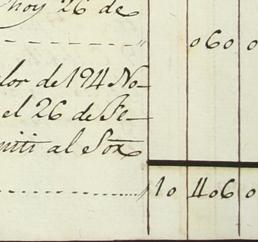 hoy 26 de
060 0
lor de 194 No-
el 26 de Fe-
miti al Sor
10 406 0